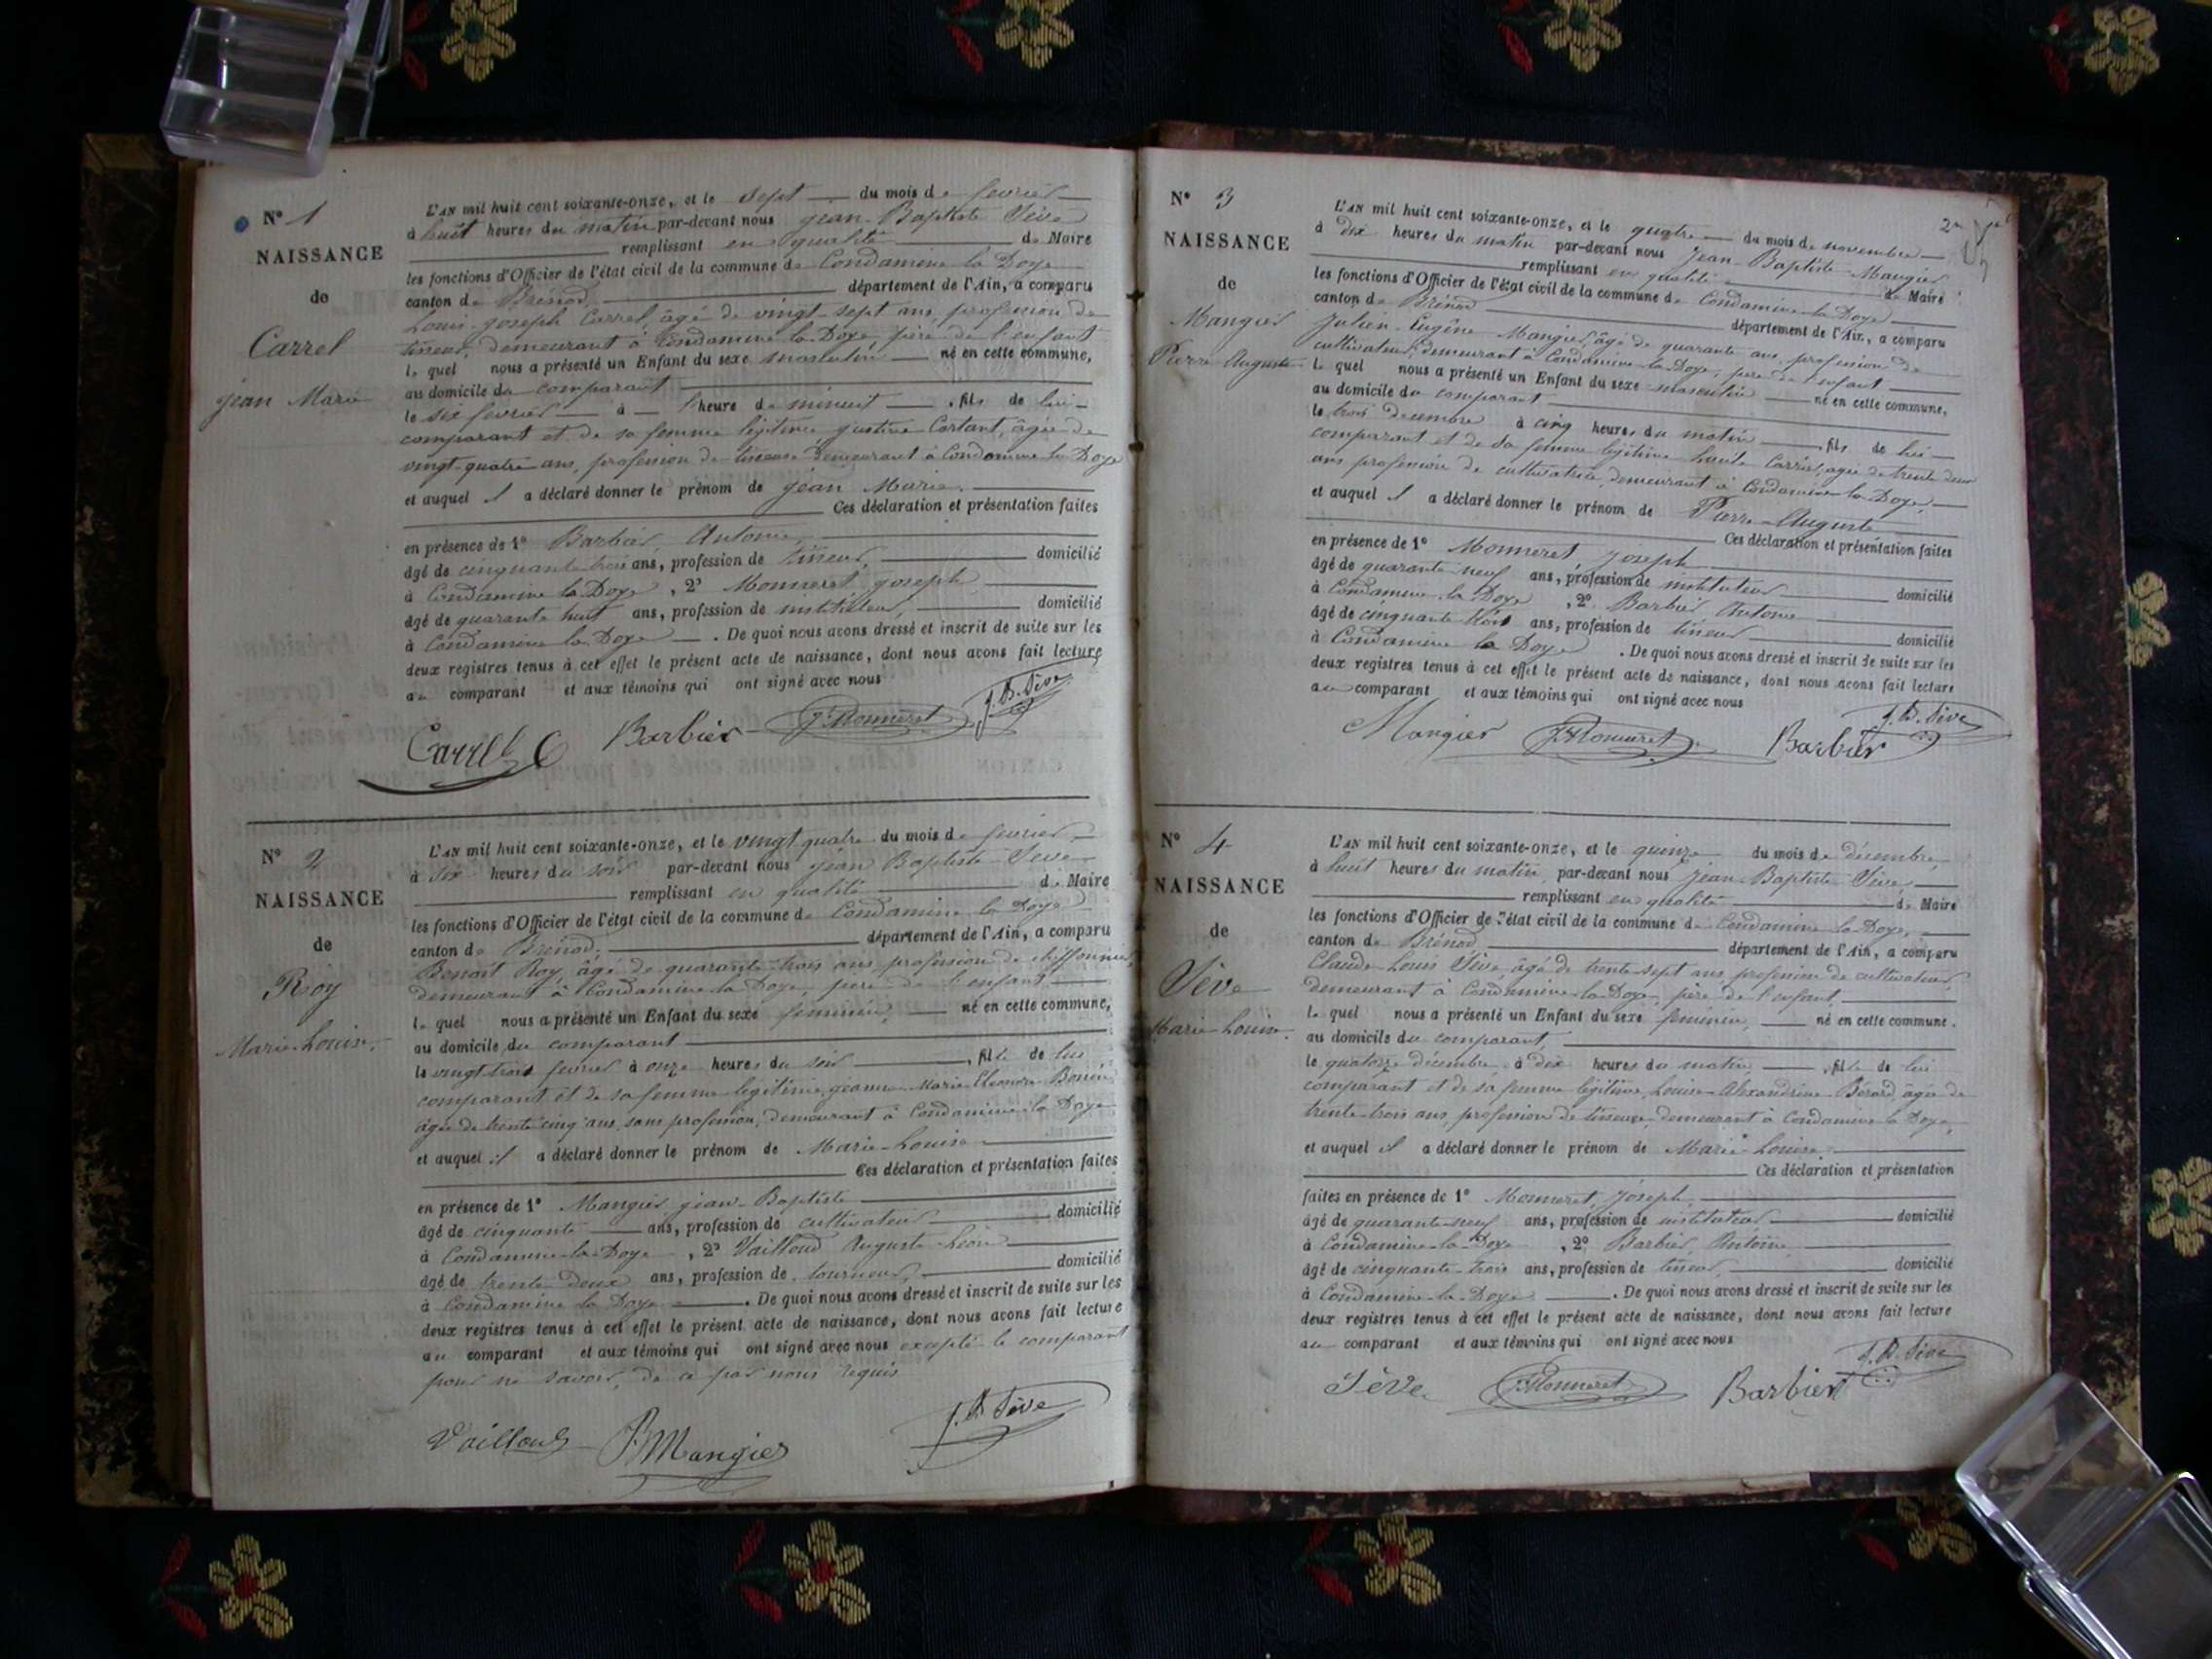 N° 1
NAISSANCE
de
Carrel
jean Marie
L'AN mil huit cent soixante-onze, et le sept du mois de fevrier
à huit heures du matin par-devant nous jean Baptiste Sève
remplissant en qualité de Maire
les fonctions d'Officier de l'état civil de la commune de Condamine la Doye
canton de Brénod, département de l'Ain, a comparu
Louis joseph Carrel, âgé de vingt-sept ans, profession de
tineur, demeurant à Condamine la Doye, père de l'enfant
le quel nous a présenté un Enfant du sexe masculin né en cette commune,
au domicile du comparant
le six fevrier à l'heure de minuit, fils de lui
comparant et de sa femme légitime justine Cartant, âgée de
vingt-quatre ans, profession de tineuse demeurant à Condamine la Doye
et auquel il a déclaré donner le prénom de jean Marie.
Ces déclaration et présentation faites
en présence de 1° Barbier, Antoine,
âgé de cinquante trois ans, profession de tineur, domicilié
à Condamine la Doye, 2° Monneret joseph
âgé de quarante huit ans, profession de instituteur, domicilié
à Condamine la Doye. De quoi nous avons dressé et inscrit de suite sur les
deux registres tenus à cet effet le présent acte de naissance, dont nous avons fait lecture
au comparant et aux témoins qui ont signé avec nous
Carrel Barbier J. Monneret J. B. Sève
N° 2
NAISSANCE
de
Roy
Marie-Louise.
L'AN mil huit cent soixante-onze, et le vingt quatre du mois de fevrier
à six heures du soir par-devant nous jean Baptiste Sève
remplissant en qualité de Maire
les fonctions d'Officier de l'état civil de la commune de Condamine la Doye
canton de Brénod, département de l'Ain, a comparu
Benoit Roy, âgé de quarante-trois ans, profession de chiffonnier,
demeurant à Condamine-la-Doye, père de l'enfant
le quel nous a présenté un Enfant du sexe feminin, né en cette commune,
au domicile du comparant
le vingt trois fevrier à onze heures du soir, fille de lui
comparant et de sa femme légitime jeanne Marie Eléonore
âgée de trente cinq ans, sans profession, demeurant à Condamine-la Doye
et auquel il a déclaré donner le prénom de Marie-Louise
Ces déclaration et présentation faites
en présence de 1° Mangier jean-Baptiste
âgé de cinquante ans, profession de cultivateur domicilié
à Condamine-la-Doye, 2° Vailloud Auguste Léon
âgé de trente-deux ans, profession de tourneur, domicilié
à Condamine la Doye. De quoi nous avons dressé et inscrit de suite sur les
deux registres tenus à cet effet le présent acte de naissance, dont nous avons fait lecture
au comparant et aux témoins qui ont signé avec nous excepté le comparant
pour ne savoir, de ce par nous requis
Vailloud JB Mangier J. B. Sève
N° 3
NAISSANCE
de
Mangier
Pierre-Auguste
L'AN mil huit cent soixante-onze, et le quatre du mois de novembre
à dix heures du matin par-devant nous Jean-Baptiste Mangier
remplissant en qualité de Maire
les fonctions d'Officier de l'état civil de la commune de Condamine-la-Doye
canton de Brénod département de l'Ain, a comparu
Julien-Eugène Mangier, âgé de quarante ans, profession de
cultivateur, demeurant à Condamine-la-Doye, père de l'enfant
le quel nous a présenté un Enfant du sexe masculin né en cette commune,
au domicile du comparant
le trois decembre à cinq heures du matin, fils de lui
comparant et de sa femme légitime Carrel, âgée de trente deux
ans profession de cultivatrice, demeurant à Condamine la-Doye,
et auquel il a déclaré donner le prénom de Pierre-Auguste
Ces déclaration et présentation faites
en présence de 1° Monneret joseph
âgé de quarante-neuf ans, profession de instituteur domicilié
à Condamine-la-Doye, 2° Barbier Antoine
âgé de cinquante trois ans, profession de tineur domicilié
à Condamine la Doye. De quoi nous avons dressé et inscrit de suite sur les
deux registres tenus à cet effet le présent acte de naissance, dont nous avons fait lecture
au comparant et aux témoins qui ont signé avec nous
Mangier J. Monneret Barbier J. B. Sève
N° 4
NAISSANCE
de
Sève
Marie-Louise.
L'AN mil huit cent soixante-onze, et le quinze du mois de décembre,
à huit heures du matin par-devant nous Jean-Baptiste Sève
remplissant en qualité de Maire
les fonctions d'Officier de l'état civil de la commune de Condamine la Doye,
canton de Brénod département de l'Ain, a comparu
Claude-Louis Sève âgé de trente-sept ans, profession de cultivateur,
demeurant à Condamine-la-Doye, père de l'enfant,
le quel nous a présenté un Enfant du sexe feminin, né en cette commune.
au domicile du comparant,
le quatorze décembre à dix heures du matin, fille de lui
comparant et de sa femme légitime, Louise-Alexandrine Bérard, âgée de
trente-trois ans, profession de tineuse, demeurant à Condamine la Doye,
et auquel il a déclaré donner le prénom de Marie-Louise,
Ces déclaration et présentation
faites en présence de 1° Monneret, joseph
âgé de quarante-neuf ans, profession de instituteur domicilié
à Condamine-la-Doye, 2° Barbier Antoine,
âgé de cinquante-trois ans, profession de tineur, domicilié
à Condamine-la-Doye. De quoi nous avons dressé et inscrit de suite sur les
deux registres tenus à cet effet le présent acte de naissance, dont nous avons fait lecture
au comparant et aux témoins qui ont signé avec nous
Sève J. Monneret Barbier J. B. Sève